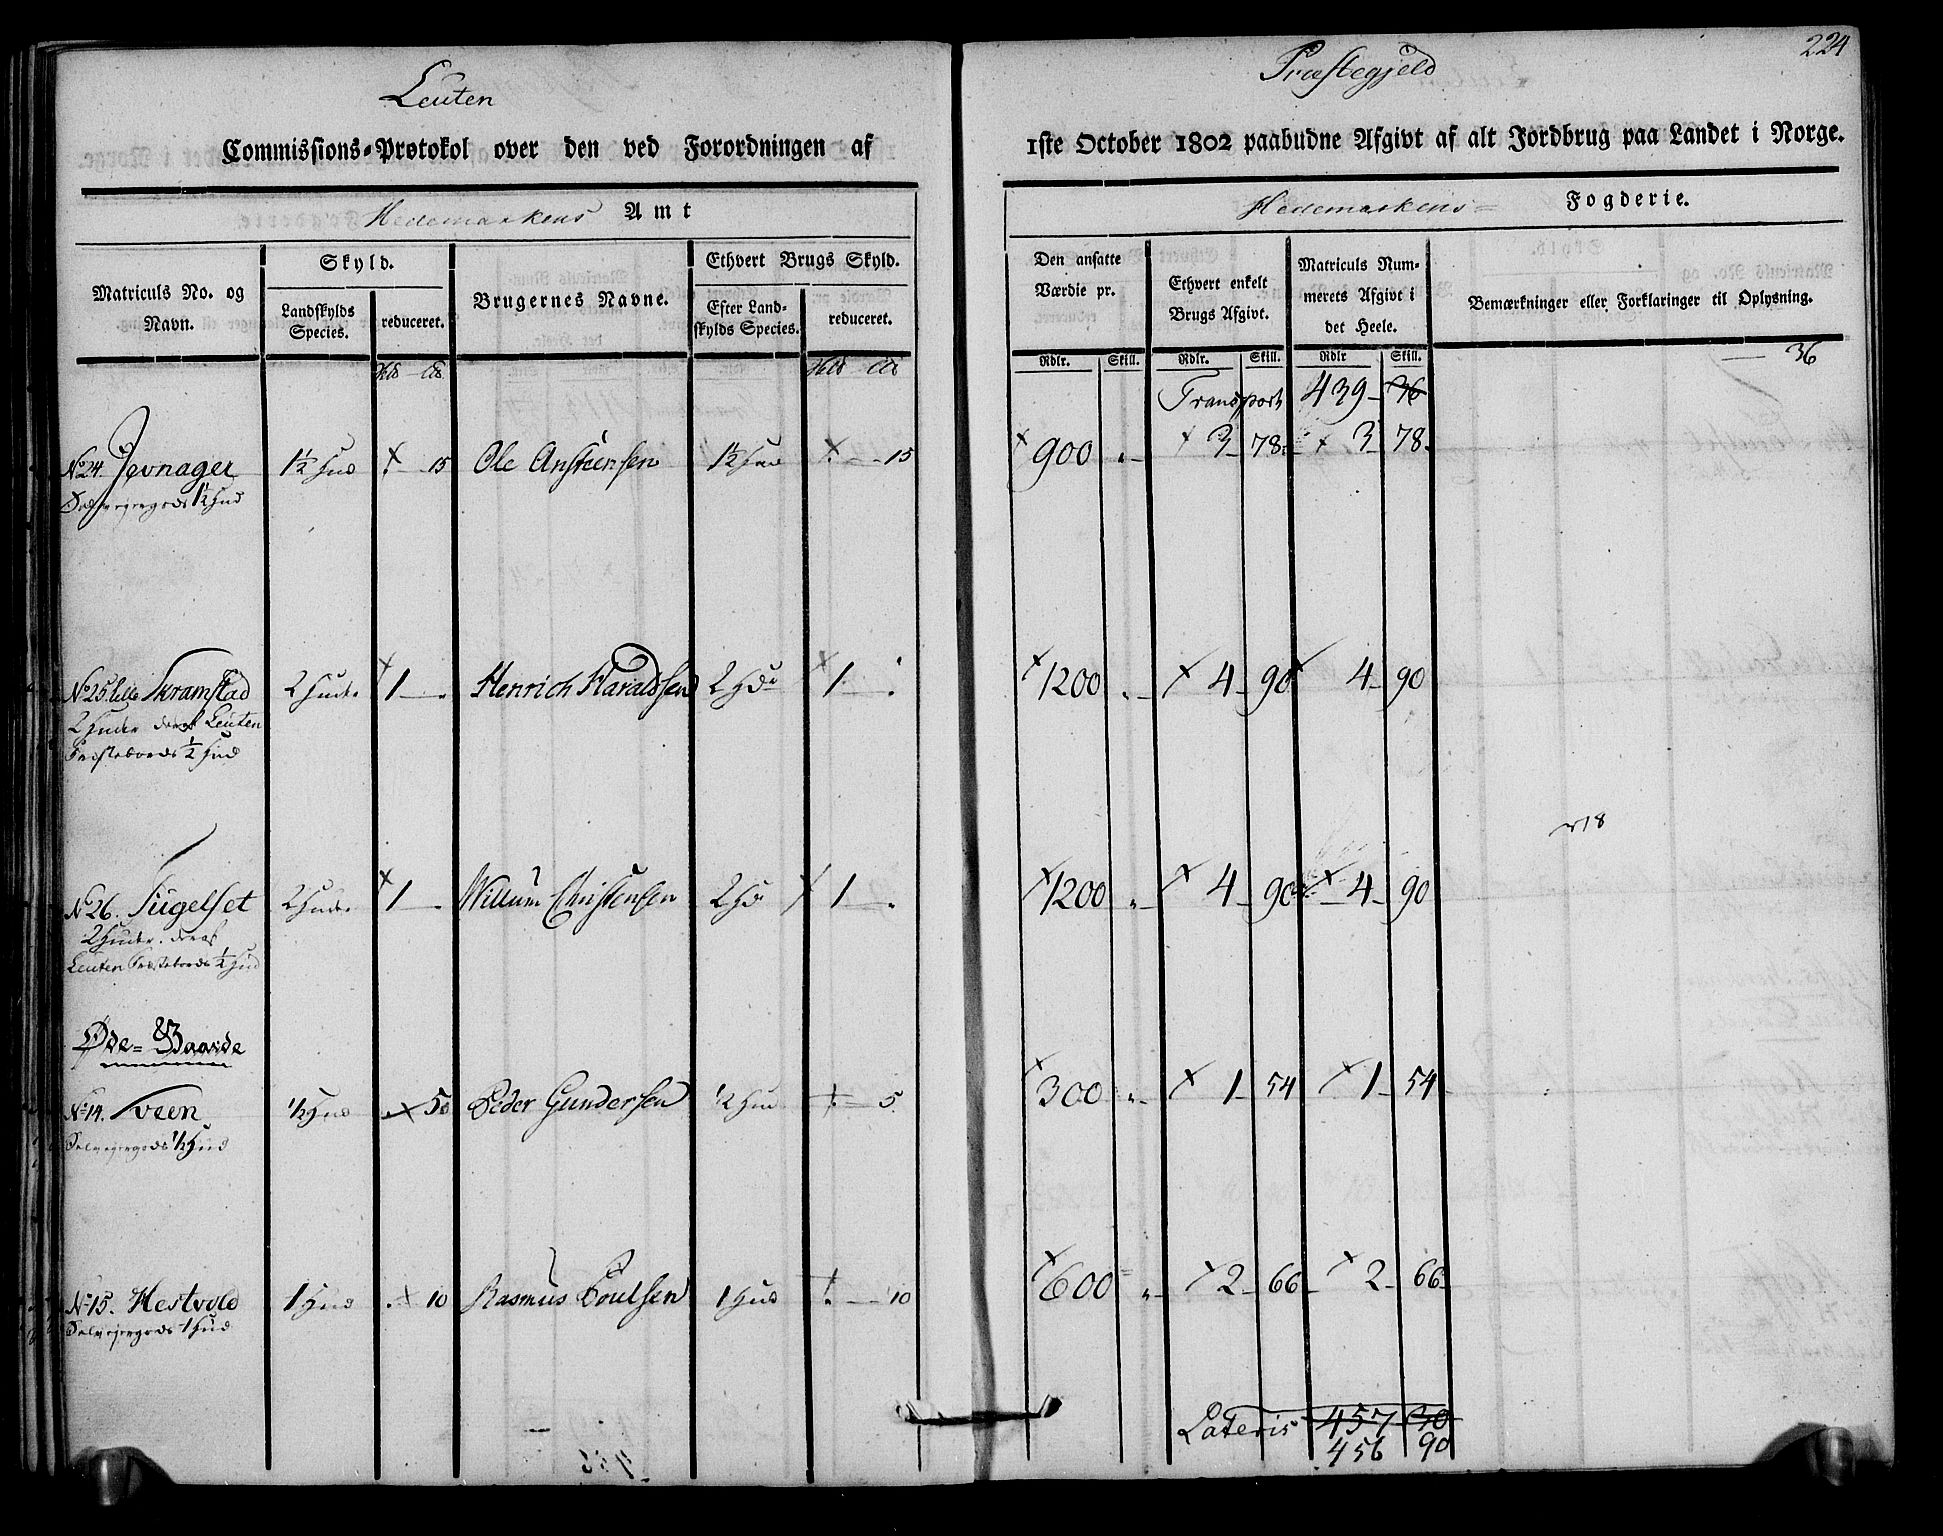 224
Leuten Præstegjeld
Commissions-Protokol over den ved Forordningen af 1ste October 1802 paabudne Afgivt af alt Jordbrug paa Landet i Norge.
Hedemarkens Amt
Hedemarkens Fogderie.
Matriculs No. og Navn.
Skyld.
Landskylds Species.
reduceret.
Brugernes Navne.
Ethvert Brugs Skyld.
Efter Landskylds Species.
reduceret.
Den ansatte Værdie pr.
Ethvert enkelt Brugs Afgivt.
Matriculs Nummerets Afgivt i det Heele.
Bemærkninger eller Forklaringer til Oplysning.
Rdlr. Skill. Rdlr. Skill. Rdlr Skill.
36
Transport 439 36
No 24. Jevnager 1½ Hud 15 Ole Anstensen 1½ Hud 15 900 3 78 3 78
Selvejergods 1½ Hud
No 25. Lille Skramstad 2 Huder 1 Henrich Haraldsen 2 Hdr 1 1200 4 90 4 90
2 Huder deraf Leuten
Præstebords ½ Hud
218
No 26. Fugelset 2 Huder 1 Willum Christensen 2 Hdr 1 1200 4 90 4 90
2 Huder deraf
Leuten Præstebords ½ Hud
Øde-Gaarde
No 14. Sveen ½ Hud 5 Peder Gundersen ½ Hud 5 300 1 54 1 54
Selvejergods ½ Hud
No 15. Hestvold 1 Hud 10 Rasmus Poulsen 1 Hud 10 600 2 66 2 66
Selvejergods 1 Hud
Lateris 457 30
456 90